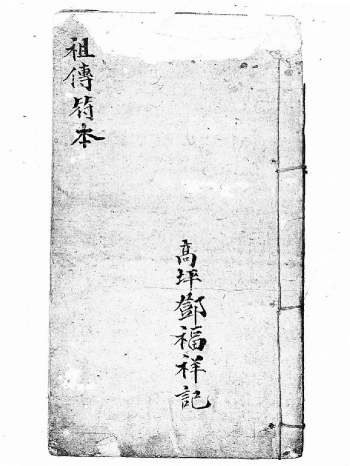 祖傳符本
高坪鄧福祥記